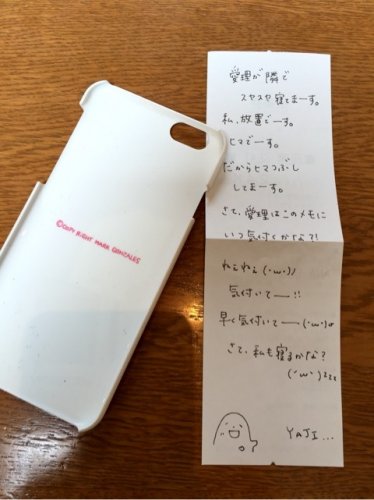 ©COPY RIGHT MARK GONZALES
愛理が隣で
スヤスヤ寝てまーす。
私、放置でーす。
ヒマでーす。
だからヒマつぶし
してまーす。
さて、愛理はこのメモに
いつ気付くかなぁ?!
ねぇねぇ(・ω・)ノ
気付いてー!!
早く気付いてー(・ω・)σ
さて、私も寝るかな?
(´ω`)zzz
YAJI...